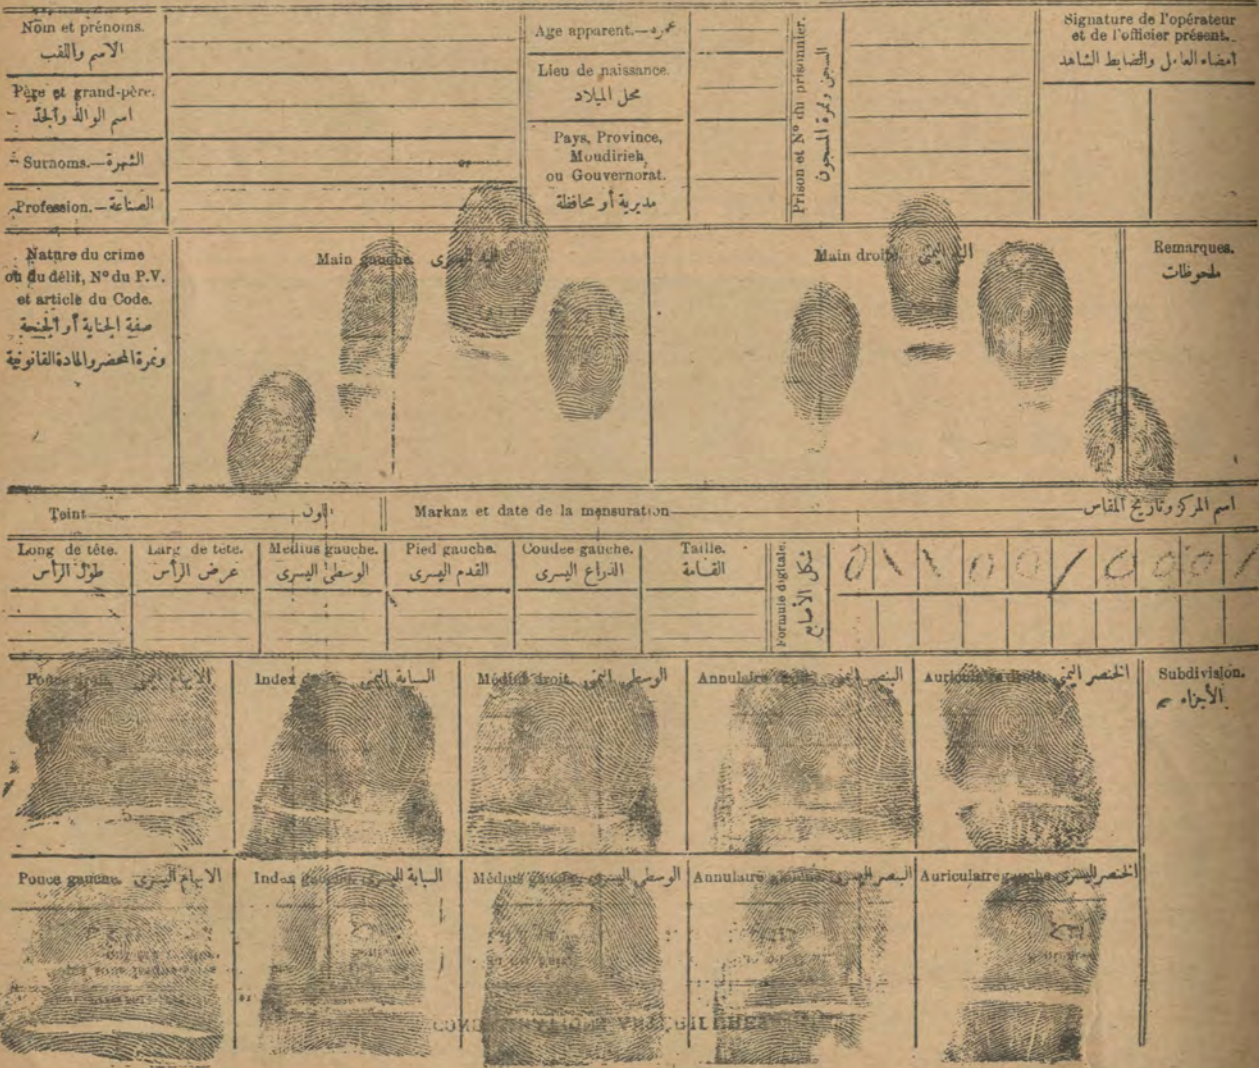 Nom et prénoms.
الاسم واللقب
Père et grand-père.
اسم الوالد والجد
Surnoms.—الشهرة
Profession.—الصناعة
Age apparent.—عمره
Lieu de naissance.
محل الميلاد
Pays, Province,
Moudirieh
ou Gouvernorat.
مديرية أو محافظة
Prison et Nº du prisonnier.
السجن ونمرة المسجون
Signature de l'opérateur
et de l'officier présent.
امضاء العامل والضابط الشاهد
Nature du crime
ou du délit, Nº du P.V.
et article du Code.
صفة الجناية أو الجنحة
ونمرة المحضر والمادة القانونية
Main gauche. اليد اليسرى
Main droite. اليد اليمنى
Remarques.
ملحوظات
Teint
Markaz et date de la mensuration
اسم المركز وتاريخ المقاس
Long de tête.
طول الرأس
Larg de tête.
عرض الرأس
Medius gauche.
الوسطى اليسرى
Pied gauche.
القدم اليسرى
Coudee gauche.
الذراع اليسرى
Taille.
القامة
Formule digitale.
شكل الأصابع
0 \ \ 0 0 / 0 0 0 /
Pouce droit. الابهام اليمنى
Index السبابة اليمنى
Médius droit. الوسطى اليمنى
Annulaire droit. البنصر اليمنى
Auriculaire droit. الخنصر اليمنى
Subdivision.
الأجزاء
Pouce gauche. الابهام اليسرى
Index gauche. السبابة اليسرى
Médius gauche. الوسطى اليسرى
Annulaire gauche. البنصر اليسرى
Auriculaire gauche. الخنصر اليسرى